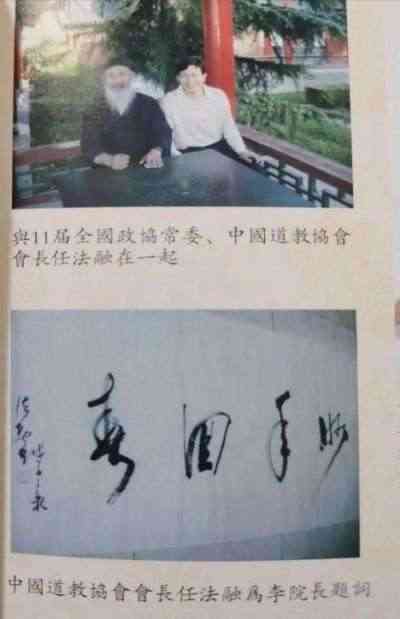 與11届全國政協常委、中國道教協會
會長任法融在一起
妙手回春
中國道教協會會長任法融爲李院長題詞